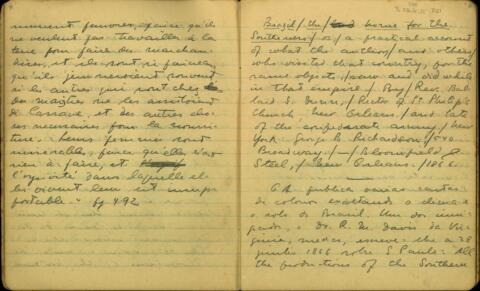 ne veulent pas travailler à la
terre pour faire des marchan-
dises, et ils sont si faineans
qu'ils jeuneroient souvent
si les autres qui sont chez
des maistres ne les assistoient
de Cassave, et des autres cho-
ses necessaires pour la nourri-
ture. Leurs femmes sont
miserables, parce qu'elles n'ont
rien à faire, et
l'oysiveté dans laquelle
les vivent leur est insup-
portable." pg 492
Brazil / the / home for the
Southerners / or / a practical account
of what the author / and others,
who visited that country, for the
same objects, / saw and did while
in that empire / By / Rev. Bal-
lard S. Dunn, / Rector of St. Philip's
Church, New Orleans, / and late
of the confederate army / New
York: George B. Richardson / 540
Broadway / — / Bloomfield &
Steel, / New Orleans. / 1866.
publica varias cartas
de colonos exaltando o clima e
o solo do Brasil. Um dos imi-
grados, o Dr. R. M. Davis da Vir-
ginia, medico, escreve-lhe a 28
junho 1866 sobre S. Paulo: All
the productions of the Southern